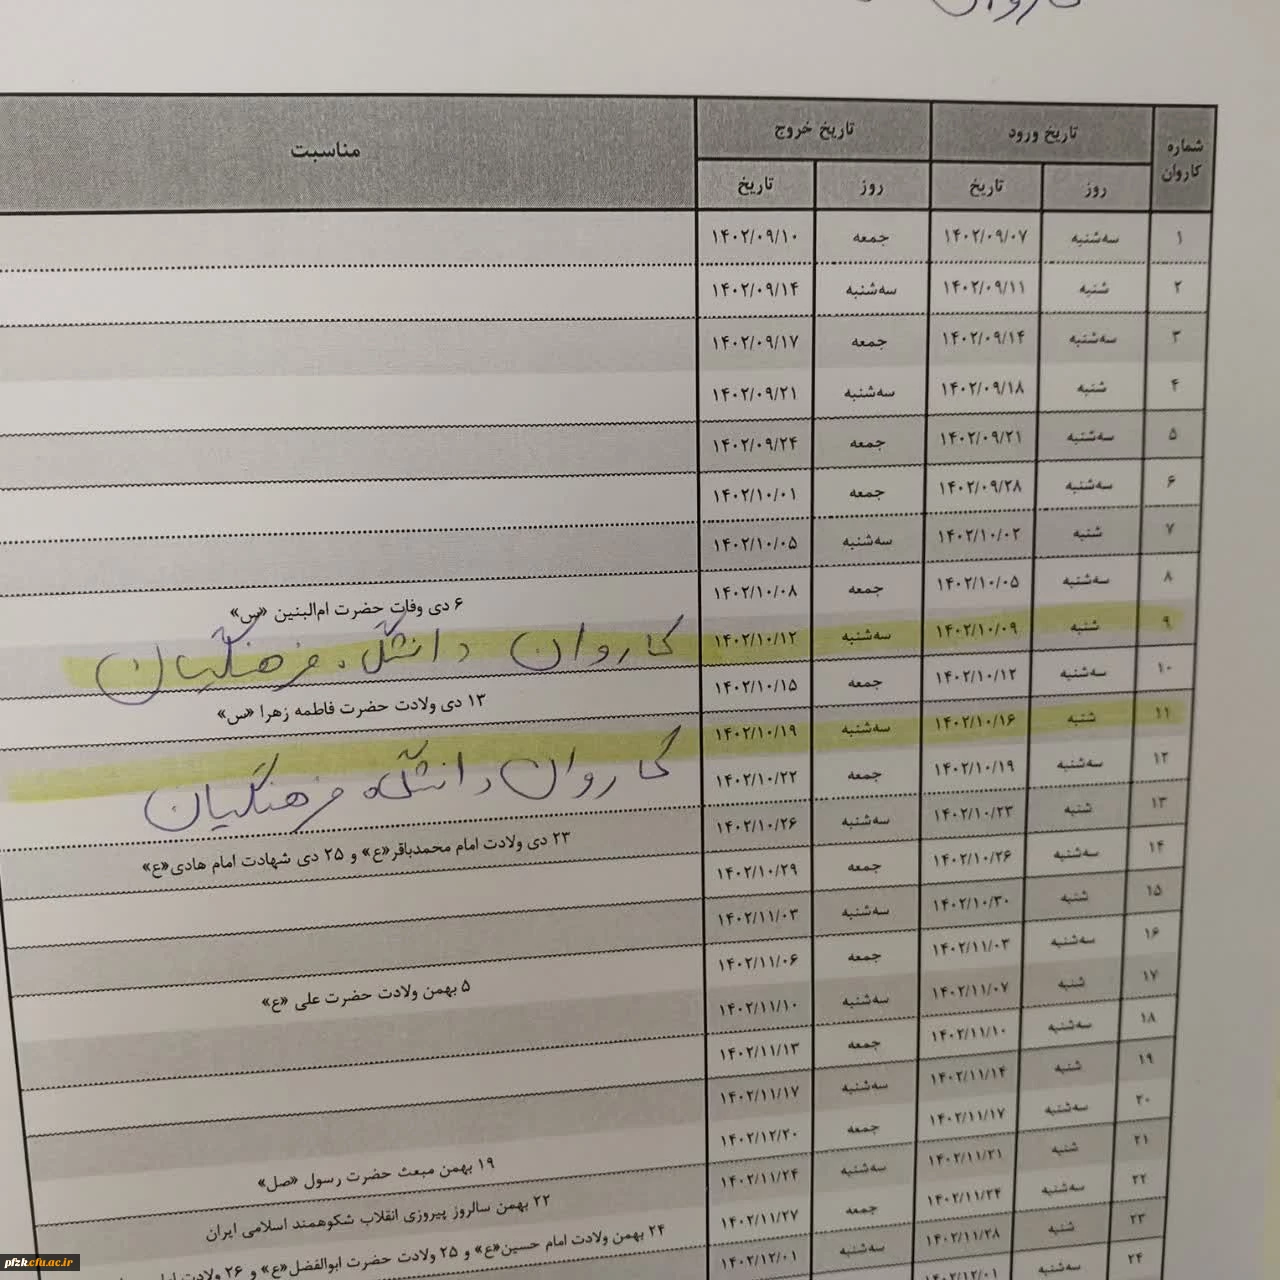 کاروان
شماره کاروان | تاریخ ورود | تاریخ خروج | مناسبت
روز | تاریخ | روز | تاریخ
۱ | سه‌شنبه | ۱۴۰۲/۰۹/۰۷ | جمعه | ۱۴۰۲/۰۹/۱۰
۲ | شنبه | ۱۴۰۲/۰۹/۱۱ | سه‌شنبه | ۱۴۰۲/۰۹/۱۴
۳ | سه‌شنبه | ۱۴۰۲/۰۹/۱۴ | جمعه | ۱۴۰۲/۰۹/۱۷
۴ | شنبه | ۱۴۰۲/۰۹/۱۸ | سه‌شنبه | ۱۴۰۲/۰۹/۲۱
۵ | سه‌شنبه | ۱۴۰۲/۰۹/۲۱ | جمعه | ۱۴۰۲/۰۹/۲۴
۶ | سه‌شنبه | ۱۴۰۲/۰۹/۲۸ | جمعه | ۱۴۰۲/۱۰/۰۱
۷ | شنبه | ۱۴۰۲/۱۰/۰۲ | سه‌شنبه | ۱۴۰۲/۱۰/۰۵
۸ | سه‌شنبه | ۱۴۰۲/۱۰/۰۵ | جمعه | ۱۴۰۲/۱۰/۰۸ | ۶ دی وفات حضرت ام‌البنین «س»
۹ | شنبه | ۱۴۰۲/۱۰/۰۹ | سه‌شنبه | ۱۴۰۲/۱۰/۱۲ | کاروان دانشگاه فرهنگیان
۱۰ | سه‌شنبه | ۱۴۰۲/۱۰/۱۲ | جمعه | ۱۴۰۲/۱۰/۱۵ | ۱۳ دی ولادت حضرت فاطمه زهرا «س»
۱۱ | شنبه | ۱۴۰۲/۱۰/۱۶ | سه‌شنبه | ۱۴۰۲/۱۰/۱۹ | کاروان دانشگاه فرهنگیان
۱۲ | سه‌شنبه | ۱۴۰۲/۱۰/۱۹ | جمعه | ۱۴۰۲/۱۰/۲۲
۱۳ | شنبه | ۱۴۰۲/۱۰/۲۳ | سه‌شنبه | ۱۴۰۲/۱۰/۲۶ | ۲۳ دی ولادت امام محمدباقر«ع» و ۲۵ دی شهادت امام هادی«ع»
۱۴ | سه‌شنبه | ۱۴۰۲/۱۰/۲۶ | جمعه | ۱۴۰۲/۱۰/۲۹
۱۵ | شنبه | ۱۴۰۲/۱۰/۳۰ | سه‌شنبه | ۱۴۰۲/۱۱/۰۳
۱۶ | سه‌شنبه | ۱۴۰۲/۱۱/۰۳ | جمعه | ۱۴۰۲/۱۱/۰۶ | ۵ بهمن ولادت حضرت علی «ع»
۱۷ | شنبه | ۱۴۰۲/۱۱/۰۷ | سه‌شنبه | ۱۴۰۲/۱۱/۱۰
۱۸ | سه‌شنبه | ۱۴۰۲/۱۱/۱۰ | جمعه | ۱۴۰۲/۱۱/۱۳
۱۹ | شنبه | ۱۴۰۲/۱۱/۱۴ | سه‌شنبه | ۱۴۰۲/۱۱/۱۷
۲۰ | سه‌شنبه | ۱۴۰۲/۱۱/۱۷ | جمعه | ۱۴۰۲/۱۲/۲۰ | ۱۹ بهمن مبعث حضرت رسول «صل»
۲۱ | شنبه | ۱۴۰۲/۱۱/۲۱ | سه‌شنبه | ۱۴۰۲/۱۱/۲۴ | ۲۲ بهمن سالروز پیروزی انقلاب شکوهمند اسلامی ایران
۲۲ | سه‌شنبه | ۱۴۰۲/۱۱/۲۴ | جمعه | ۱۴۰۲/۱۱/۲۷ | ۲۴ بهمن ولادت امام حسین«ع» و ۲۵ ولادت حضرت ابوالفضل«ع» و ۲۶ ولادت
۲۳ | شنبه | ۱۴۰۲/۱۱/۲۸ | سه‌شنبه | ۱۴۰۲/۱۲/۰۱
۲۴ | سه‌شنبه | ۱۴۰۲/۱۲/۰۱
pfzk.cfu.ac.ir